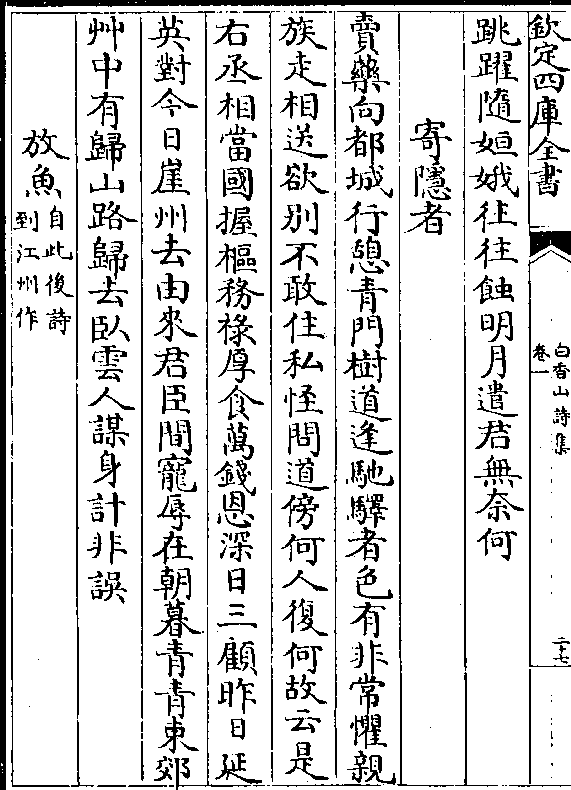 欽定四庫全書
白香山詩集
卷一
二十七
跳躍隨姮娥往往蝕明月遣君無奈何
寄隱者
賣藥向都城行憩青門樹道逢馳驛者色有非常懼親
族走相送欲别不敢住私怪問道傍何人復何故云是
右丞相當國握樞務祿厚食萬錢恩深日三顧昨日延
英對今日崖州去由來君臣間寵辱在朝暮青青東郊
艸中有歸山路歸去臥雲人謀身計非誤
放魚
自此後詩
到江州作